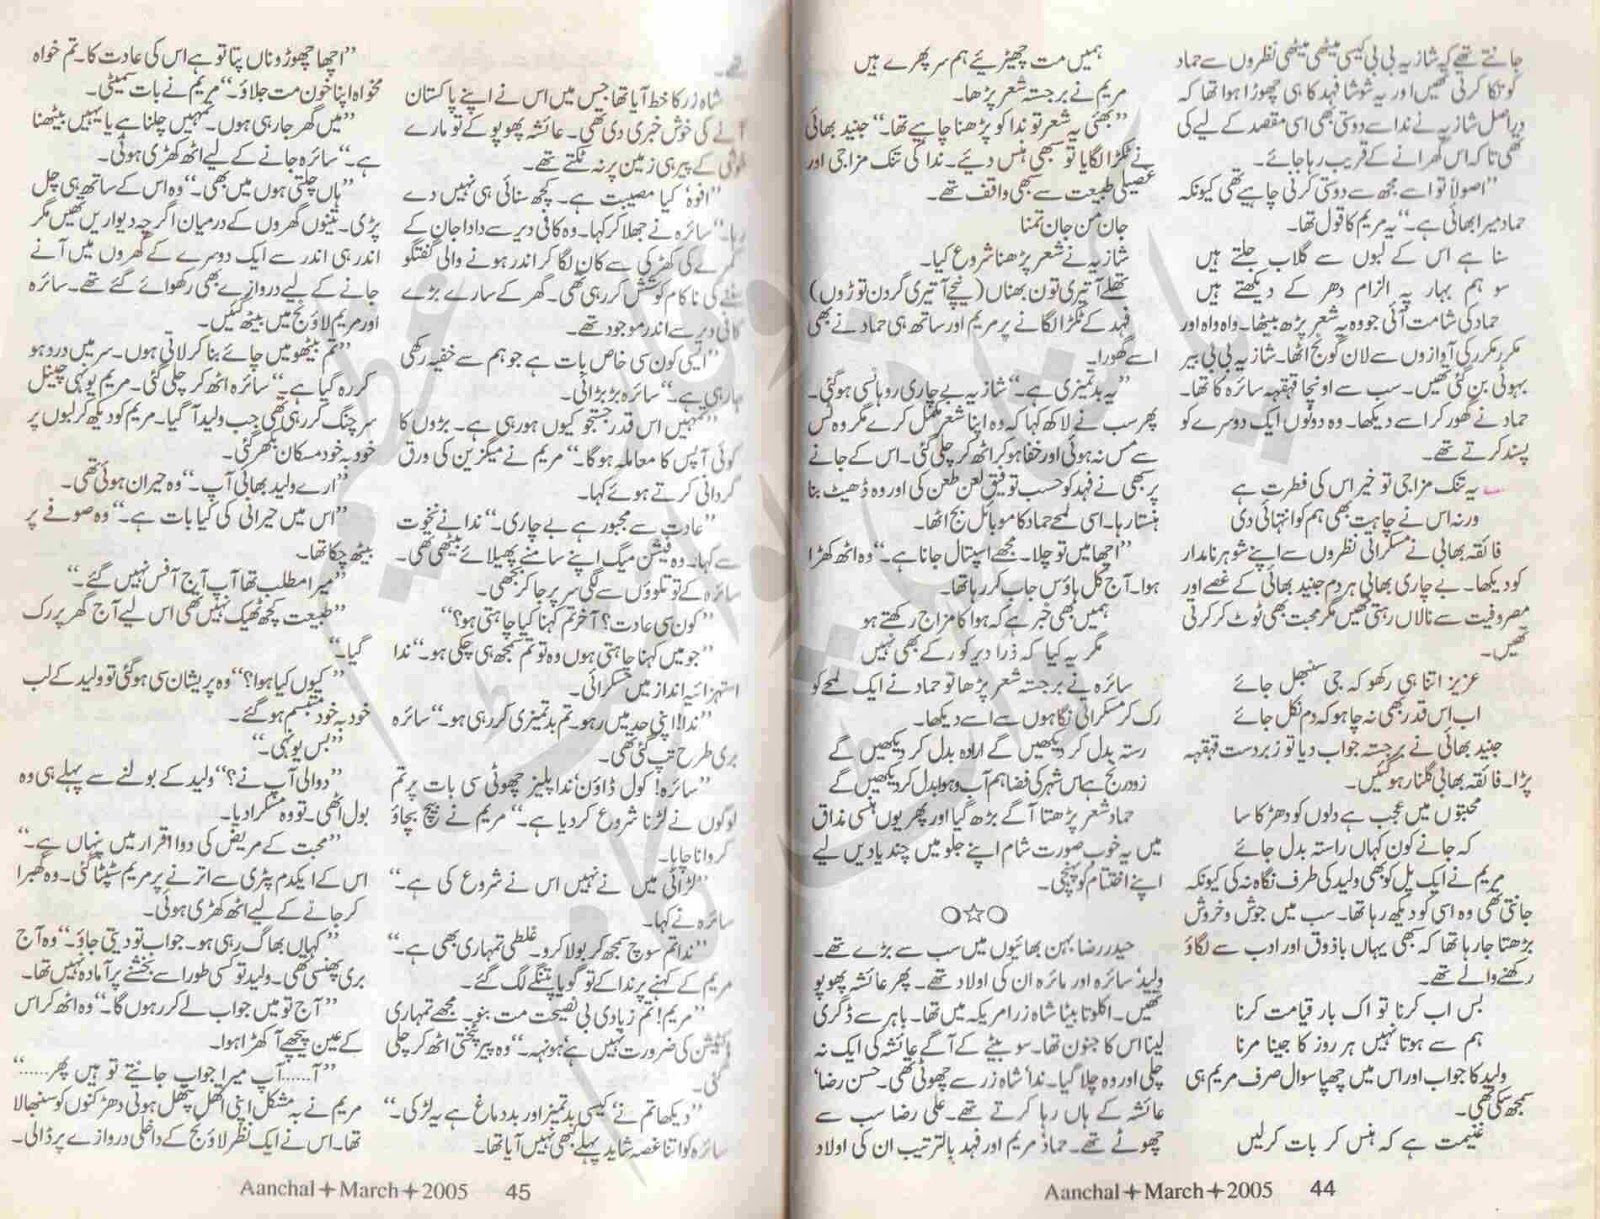 جانتے تھے کہ شازیہ بی بی کیسی میٹھی میٹھی نظروں سے حماد
کو تکا کرتی تھیں اور یہ شوشا فہد کا ہی چھوڑا ہوا تھا کہ
دراصل شازیہ نے ندا سے دوستی بھی اسی مقصد کے لیے کی
تھی تاکہ اس گھرانے کے قریب رہا جائے۔
”اصولاً تو اسے مجھ سے دوستی کرنی چاہیے تھی کیونکہ
حماد میرا بھائی ہے۔“ یہ مریم کا قول تھا۔
سنا ہے اس کے لبوں سے گلاب جلتے ہیں
سو ہم بہار پہ الزام دھر کے دیکھتے ہیں
حماد کی شامت آئی جو وہ یہ شعر پڑھ بیٹھا۔ واہ واہ اور
مکرر مکرر کی آوازوں سے لان گونج اٹھا۔ شازیہ بی بی بیر
بہوٹی بن گئی تھیں۔ سب سے اونچا قہقہہ سائرہ کا تھا۔
حماد نے گھور کر اسے دیکھا۔ وہ دونوں ایک دوسرے کو
پسند کرتے تھے۔
یہ تنک مزاجی تو خیر اس کی فطرت ہے
ورنہ اس نے چاہت بھی ہم کو انتہائی دی
فائقہ بھابی نے مسکراتی نظروں سے اپنے شوہر نامدار
کو دیکھا۔ بے چاری بھابی ہر دم جنید بھائی کے غصے اور
مصروفیت سے نالاں رہتی تھیں مگر محبت بھی ٹوٹ کر کرتی
تھیں۔
عزیز اتنا ہی رکھو کہ جی سنبھل جائے
اب اس قدر بھی نہ چاہو کہ دم نکل جائے
جنید بھائی نے برجستہ جواب دیا تو زبردست قہقہہ
پڑا۔ فائقہ بھابی گلنار ہو گئیں۔
محبتوں میں عجب ہے دلوں کو دھڑکا سا
کہ جانے کون کہاں راستہ بدل جائے
مریم نے ایک پل کو بھی ولید کی طرف نگاہ نہ کی کیونکہ
جانتی تھی وہ اسی کو دیکھ رہا تھا۔ سب میں جوش و خروش
بڑھتا جا رہا تھا کہ سبھی یہاں باذوق اور ادب سے لگاؤ
رکھنے والے تھے۔
بس اب کرنا تو اک بار قیامت کرنا
ہم سے ہوتا نہیں ہر روز کا جینا مرنا
ولید کا جواب اور اس میں چھپا سوال صرف مریم ہی
سمجھ سکی تھی۔
غنیمت ہے کہ ہنس کر بات کرلیں
ہمیں مت چھیڑیئے ہم سر پھرے ہیں
مریم نے برجستہ شعر پڑھا۔
”بھئی یہ شعر تو ندا کو پڑھنا چاہیے تھا۔“ جنید بھائی
نے ٹکڑا لگایا تو سبھی ہنس دیئے۔ ندا کی تنک مزاجی اور
غصیلی طبیعت سے سبھی واقف تھے۔
جان من جان تمنا
شازیہ نے شعر پڑھنا شروع کیا۔
تھلے آ تیری تون بھناں (نیچے آ تیری گردن توڑوں)
فہد کے ٹکڑا لگانے پر مریم اور ساتھ ہی حماد نے بھی
اسے گھورا۔
”یہ بدتمیزی ہے۔“ شازیہ بے چاری روہانسی ہو گئی۔
پھر سب نے لاکھ کہا کہ وہ اپنا شعر مکمل کرے مگر وہ ٹس
سے مس نہ ہوئی اور خفا ہو کر اٹھ کر چلی گئی۔ اس کے جانے
پر سبھی نے فہد کو حسب توفیق لعن طعن کی اور وہ ڈھیٹ بنا
ہنستا رہا۔ اسی لمحے حماد کا موبائل بج اٹھا۔
”اچھا میں تو چلا۔ مجھے اسپتال جانا ہے۔“ وہ اٹھ کھڑا
ہوا۔ آج کل ہاؤس جاب کر رہا تھا۔
ہمیں بھی خبر ہے کہ ہوا کا مزاج رکھتے ہو
مگر یہ کیا کہ ذرا دیر کو رکے بھی نہیں
سائرہ نے برجستہ شعر پڑھا تو حماد نے ایک لمحے کو
رک کر مسکراتی نگاہوں سے اسے دیکھا۔
رستہ بدل کر دیکھیں گے ارادہ بدل کر دیکھیں گے
زود رنج ہے اس شہر کی فضا ہم آب و ہوا بدل کر دیکھیں گے
حماد شعر پڑھتا آگے بڑھ گیا اور پھر یوں ہنسی مذاق
میں یہ خوب صورت شام اپنے جلو میں چند یادیں لیے
اپنے اختتام کو پہنچی۔
○☆○
حیدر رضا بہن بھائیوں میں سب سے بڑے تھے۔
ولید‘ سائرہ اور مائرہ ان کی اولاد تھے۔ پھر عائشہ پھوپو
تھیں۔ اکلوتا بیٹا شاہ زر امریکہ میں تھا۔ باہر سے ڈگری
لینا اس کا جنون تھا۔ سو بیٹے کے آگے عائشہ کی ایک نہ
چلی اور وہ چلا گیا۔ ندا‘ شاہ زر سے چھوٹی تھی۔ حسن رضا‘
عائشہ کے ہاں رہا کرتے تھے۔ علی رضا سب سے
چھوٹے تھے۔ حماد‘ مریم اور فہد بالترتیب ان کی اولاد
Aanchal+March+2005 44
تھے۔
شاہ زر کا خط آیا تھا‘ جس میں اس نے اپنے پاکستان
آنے کی خوش خبری دی تھی۔ عائشہ پھوپو کے تو مارے
خوشی کے پیر ہی زمین پر نہ ٹکتے تھے۔
”افوہ‘ کیا مصیبت ہے۔ کچھ سنائی ہی نہیں دے
رہا۔“ سائرہ نے جھلا کر کہا۔ وہ کافی دیر سے دادا جان کے
کمرے کی کھڑکی سے کان لگا کر اندر ہونے والی گفتگو
سننے کی ناکام کوشش کر رہی تھی۔ گھر کے سارے بڑے
کافی دیر سے اندر موجود تھے۔
”ایسی کون سی خاص بات ہے جو ہم سے خفیہ رکھی
جا رہی ہے۔“ سائرہ بڑبڑائی۔
”تمہیں اس قدر جستجو کیوں ہو رہی ہے۔ بڑوں کا
کوئی آپس کا معاملہ ہوگا۔“ مریم نے میگزین کی ورق
گردانی کرتے ہوئے کہا۔
”عادت سے مجبور ہے بے چاری۔“ ندا نے نخوت
سے کہا۔ وہ فیشن میگ اپنے سامنے پھیلائے بیٹھی تھی۔
سائرہ کے تو تلوؤں سے لگی سر پر جا کر بجھی۔
”کون سی عادت؟ آخر تم کہنا کیا چاہتی ہو؟“
”جو میں کہنا چاہتی ہوں وہ تو تم سمجھ ہی چکی ہو۔“ ندا
استہزائیہ انداز میں مسکرائی۔
”ندا! اپنی حد میں رہو۔ تم بدتمیزی کر رہی ہو۔“ سائرہ
بری طرح تپ گئی تھی۔
”سائرہ! کول ڈاؤن‘ ندا پلیز چھوٹی سی بات پر تم
لوگوں نے لڑنا شروع کر دیا ہے۔“ مریم نے بیچ بچاؤ
کروانا چاہا۔
”لڑائی میں نے نہیں اس نے شروع کی ہے۔“
سائرہ نے کہا۔
”ندا تم سوچ سمجھ کر بولا کرو۔ غلطی تمہاری بھی ہے۔“
مریم کے کہنے پر ندا کے تو گویا پتنگے لگ گئے۔
”مریم! تم زیادی بی نصیحت مت بنو۔ مجھے تمہاری
کی ضرورت نہیں ہے‘ ہونہہ۔“ وہ پیر پٹختی اٹھ کر چلی
گئی۔
”دیکھا تم نے‘ کیسی بدتمیز اور بد دماغ ہے یہ لڑکی۔“
سائرہ کو اتنا غصہ شاید پہلے کبھی نہیں آیا تھا۔
”اچھا چھوڑو ناں پتا تو ہے اس کی عادت کا۔ تم خواہ
مخواہ اپنا خون مت جلاؤ۔“ مریم نے بات سمیٹی۔
”میں گھر جا رہی ہوں۔ تمہیں چلنا ہے یا یہیں بیٹھنا
ہے۔“ سائرہ جانے کے لیے اٹھ کھڑی ہوئی۔
”ہاں چلتی ہوں میں بھی۔“ وہ اس کے ساتھ ہی چل
پڑی۔ تینوں گھروں کے درمیان اگرچہ دیواریں تھیں مگر
اندر ہی اندر سے ایک دوسرے کے گھروں میں آنے
جانے کے لیے دروازے بھی رکھوائے گئے تھے۔ سائرہ
اور مریم لاؤنج میں بیٹھ گئیں۔
”تم بیٹھو میں چائے بنا کر لاتی ہوں۔ سر میں درد ہو
کر رہ گیا ہے۔“ سائرہ اٹھ کر چلی گئی۔ مریم یونہی چینل
سرچنگ کر رہی تھی جب ولید آ گیا۔ مریم کو دیکھ کر لبوں پر
خود بہ خود مسکان بکھر گئی۔
”ارے ولید بھائی آپ۔“ وہ حیران ہوئی تھی۔
”اس میں حیرانی کی کیا بات ہے۔“ وہ صوفے پر
بیٹھ چکا تھا۔
”میرا مطلب تھا آپ آج آفس نہیں گئے۔“
”طبیعت کچھ ٹھیک نہیں تھی اس لیے آج گھر پر رک
گیا۔“
”کیوں کیا ہوا؟“ وہ پریشان سی ہو گئی تو ولید کے لب
خود بہ خود متبسم ہو گئے۔
”بس یونہی۔“
”دوا لی آپ نے؟“ ولید کے بولنے سے پہلے ہی وہ
بول اٹھی۔ تو وہ مسکرا دیا۔
”محبت کے مریض کی دوا اقرار میں پنہاں ہے۔“
اس کے ایکدم پٹری سے اترنے پر مریم سٹپٹا گئی۔ وہ گھبرا
کر جانے کے لیے اٹھ کھڑی ہوئی۔
”کہاں بھاگ رہی ہو۔ جواب تو دیتی جاؤ۔“ وہ آج
بری پھنسی تھی۔ ولید تو کسی طور اسے بخشنے پر آمادہ نہیں تھا۔
”آج تو میں جواب لے کر رہوں گا۔“ وہ اٹھ کر اس
کے عین پیچھے آ کھڑا ہوا۔
”آ......آپ میرا جواب جانتے تو ہیں پھر......“
مریم نے بہ مشکل اپنی اتھل پتھل ہوتی دھڑکنوں کو سنبھالا
تھا۔ اس نے ایک نظر لاؤنج کے داخلی دروازے پر ڈالی۔
Aanchal+March+2005 45